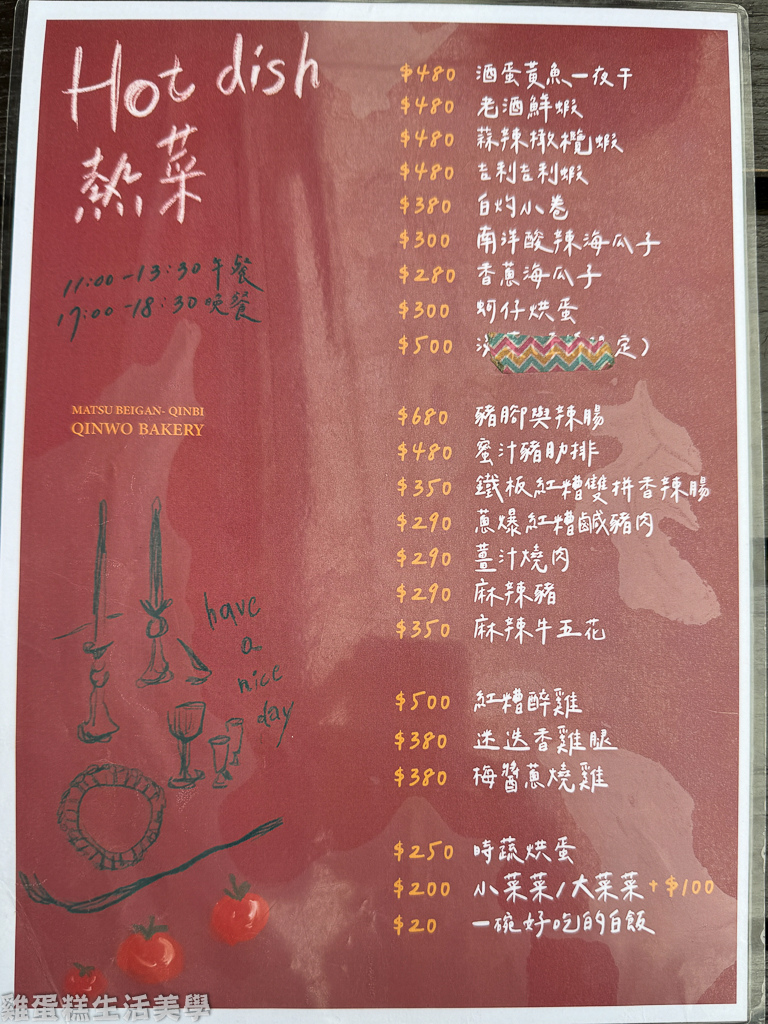 Hot dish
熱菜
11:00-13:30午餐
17:00-18:30晚餐
MATSU BEIGAN- QINBI
QINWO BAKERY
have
a
nice
day
$480 酒蛋黃魚一夜干
$480 老酒鮮蝦
$480 蒜辣橄欖蝦
$480 吉利吉利蝦
$380 白灼小卷
$300 南洋酸辣海瓜子
$280 香蔥海瓜子
$300 蚵仔烘蛋
$500 定)
$680 豬腳與辣腸
$480 蜜汁豬肋排
$350 鐵板紅糟雙拼香辣腸
$290 蔥爆紅糟鹹豬肉
$290 薑汁燒肉
$290 麻辣豬
$350 麻辣牛五花
$500 紅糟醉雞
$380 迷迭香雞腿
$380 梅醬蔥燒雞
$250 時蔬烘蛋
$200 小菜菜/大菜菜+$100
$20 一碗好吃的白飯
雞蛋糕生活美學